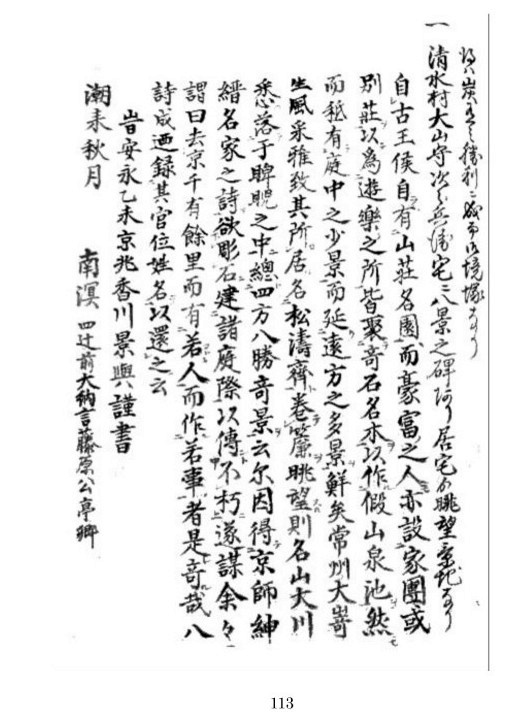 一 清水村大山守次郎兵衛宅ニ八景之碑阿り居宅の眺望景地なり
自古王侯自有山荘名園而豪富之人亦設家園或
別荘以為遊楽之所皆聚奇石名木以作假山泉池然
而秪有庭中之少景而延遠方之多景鮮矣常州大嵜
生風采雅致其所居名松濤齊巻簾眺望則名山大川
悉落于睥睨之中總四方八勝奇景云尓因得京師紳
縉名家之詩欲彫石建諸庭際以傳不朽遂謀余々
謂曰去京千有餘里而有若人而作若事者是奇哉八
詩成廼録其官位姓名以還之云
旹安永乙未京兆香川景興謹書
潮来秋月 南溟 四辻前大納言藤原公亨卿
113